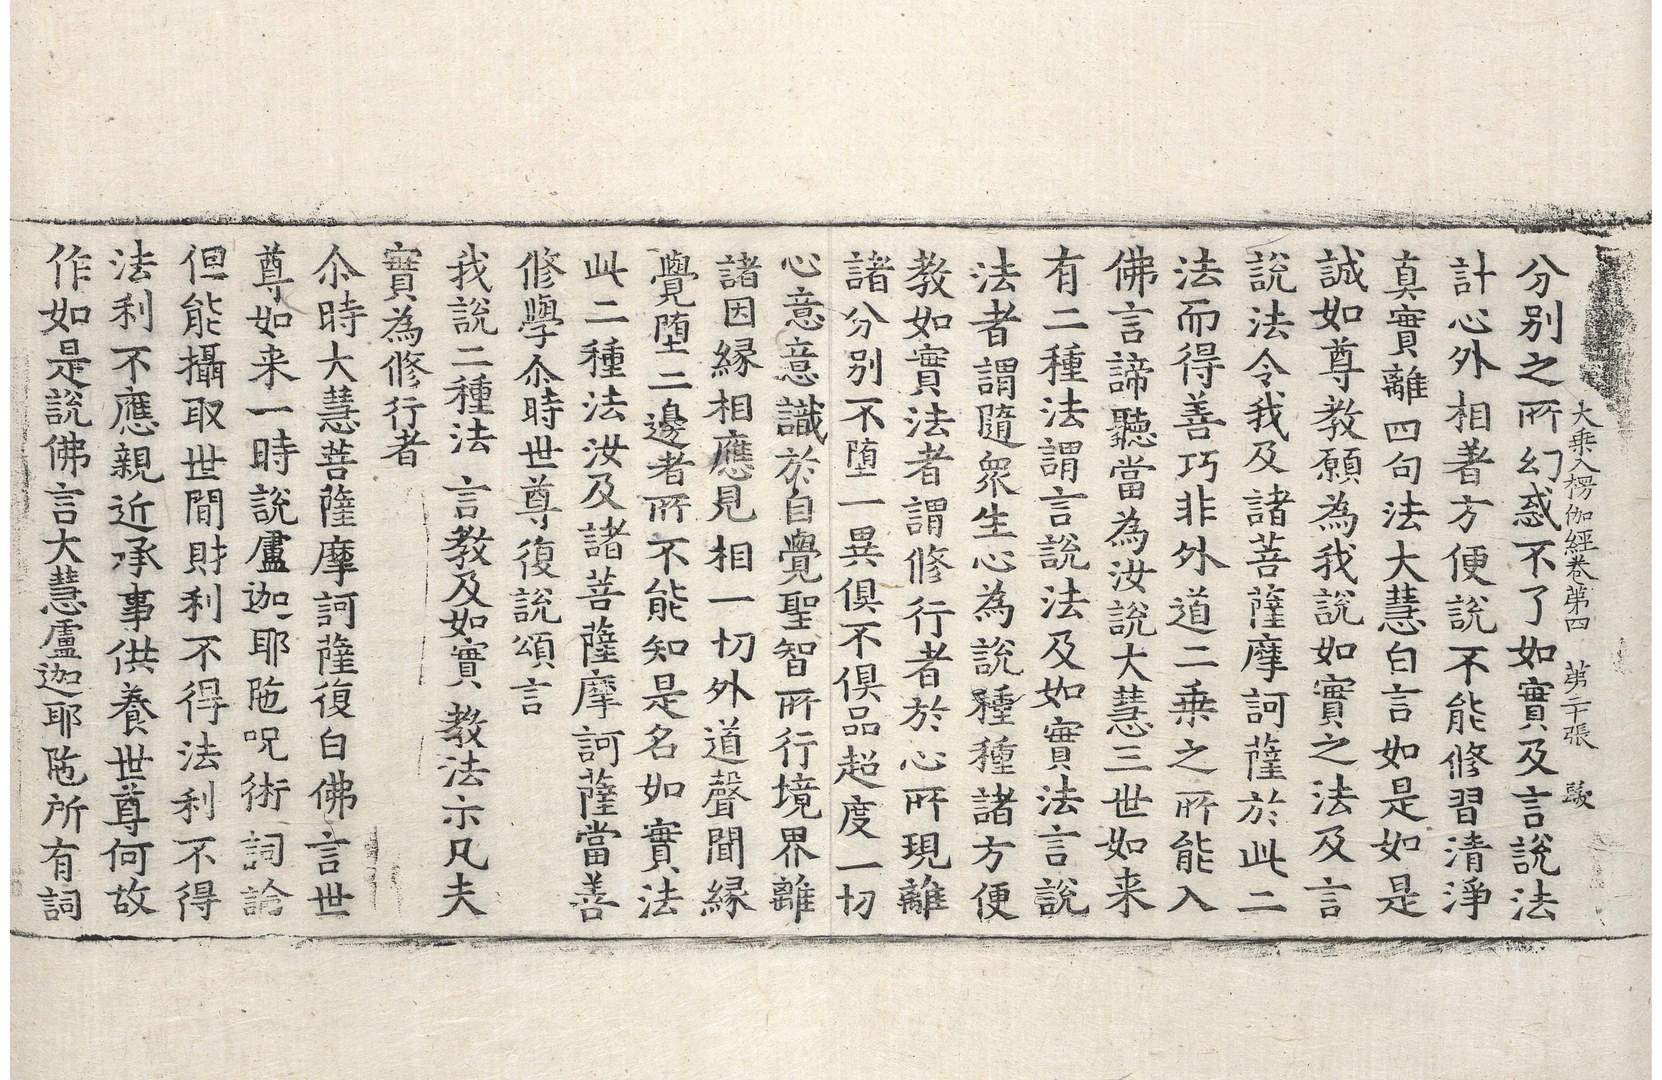 大乘入楞伽經卷第四 第二十張 㱃
分别之所幻惑不了如實及言說法
計心外相著方便說不能修習清淨
真實離四句法大慧白言如是如是
誠如尊教願為我說如實之法及言
說法令我及諸菩薩摩訶薩於此二
法而得善巧非外道二乘之所能入
佛言諦聽當為汝說大慧三世如来
有二種法謂言說法及如實法言說
法者謂隨衆生心為說種種諸方便
教如實法者謂修行者於心所現離
諸分别不墮一異俱不俱品超度一切
心意意識於自覺聖智所行境界離
諸因緣相應見相一切外道聲聞緣
覺墮二邊者所不能知是名如實法
此二種法汝及諸菩薩摩訶薩當善
修學尒時世尊復說頌言
我說二種法 言教及如實 教法示凡夫
實為修行者
尒時大慧菩薩摩訶薩復白佛言世
尊如来一時說盧迦耶陁呪術詞論
但能攝取世間財利不得法利不得
法利不應親近承事供養世尊何故
作如是說佛言大慧盧迦耶陁所有詞